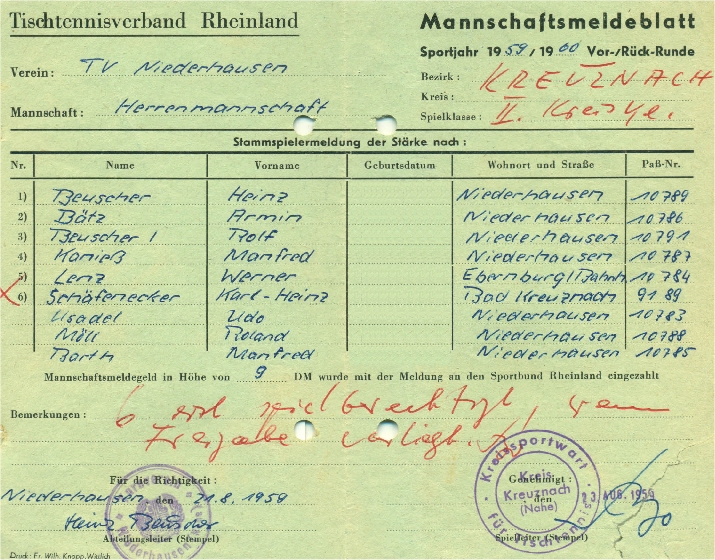 Tischtennisverband Rheinland
Mannschaftsmeldeblatt
Sportjahr 1959/1960 Vor-/Rück-Runde
Verein: TV Niederhausen
Bezirk: KREUZNACH
Kreis:
Mannschaft: Herrenmannschaft
Spielklasse: II. Kreiskl.
Stammspielermeldung der Stärke nach:
Nr. Name Vorname Geburtsdatum Wohnort und Straße Paß-Nr.
1) Beuscher Heinz Niederhausen 10789
2) Bätz Armin Niederhausen 10786
3) Beuscher I Rolf Niederhausen 10791
4) Karieß Manfred Niederhausen 10787
5) Lenz Werner Ebernburg/Bahnh. 10784
6) Schäfenecker Karl-Heinz Bad Kreuznach 9189
Usadel Udo Niederhausen 10783
Möll Roland Niederhausen 10788
Barth Manfred Niederhausen 10785
Mannschaftsmeldegeld in Höhe von 9 DM wurde mit der Meldung an den Sportbund Rheinland eingezahlt
Bemerkungen: 6 erst spielberechtigt, wenn
Freigabe vorliegt.
Für die Richtigkeit:
Genehmigt:
Niederhausen, den 21.8.1959
den 23. AUG. 1959
Heinz Beuscher
Abteilungsleiter (Stempel)
Spielleiter (Stempel)
Kreissportwart für Tischtennis
Kreis
Kreuznach
(Nahe)
Druck: Fr. Wilh. Knopp, Wittlich